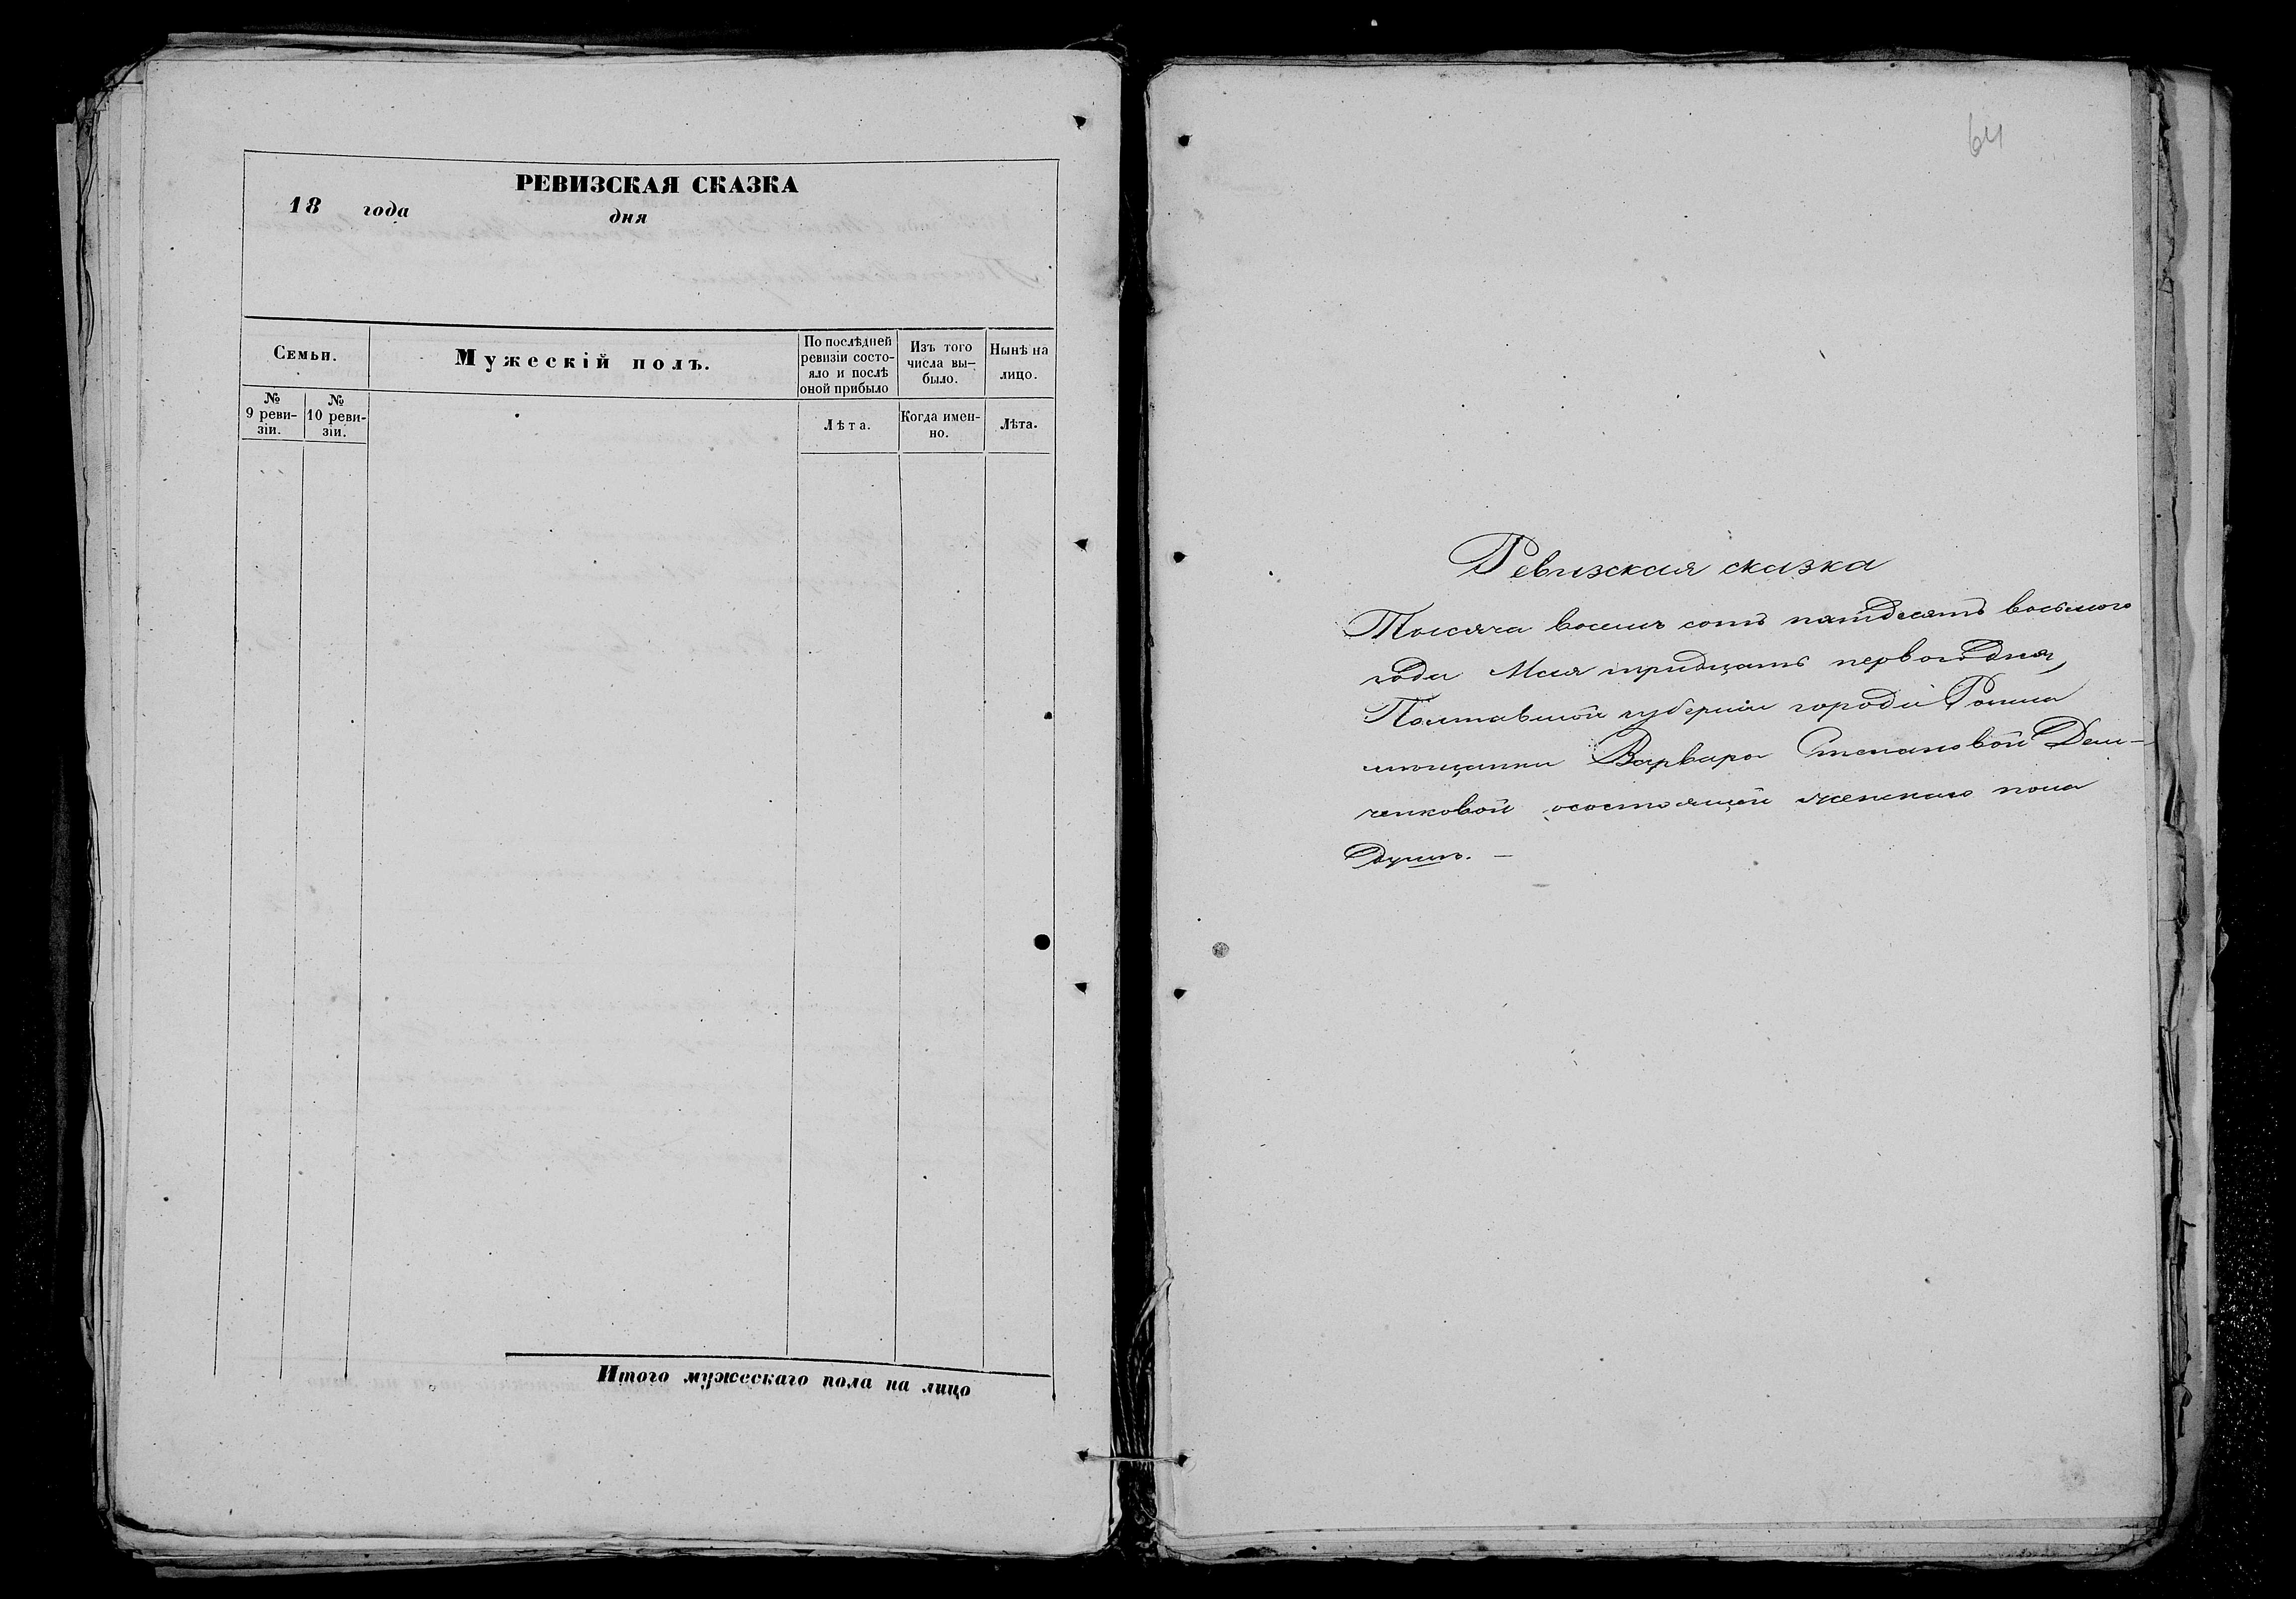 РЕВИЗСКАЯ СКАЗКА
18 года дня
Семьи.
Мужескій полъ.
По послѣдней ревизіи состо-
яло и послѣ
оной прибыло
Изъ того
числа вы-
было.
Нынѣ на
лицо.
№
9 реви-
зіи.
№
10 реви-
зіи.
Лѣта.
Когда имен-
но.
Лѣта.
Итого мужескаго пола на лицо
64
Ревизская сказка
Тысяча восемь сотъ пятдесятъ восьмого
года Мая тридцать первого дня,
Полтавской губерніи города Ромна
мѣщанки Варвары Степановой Дем-
ченковой осостоящей женскаго пола
душъ. —